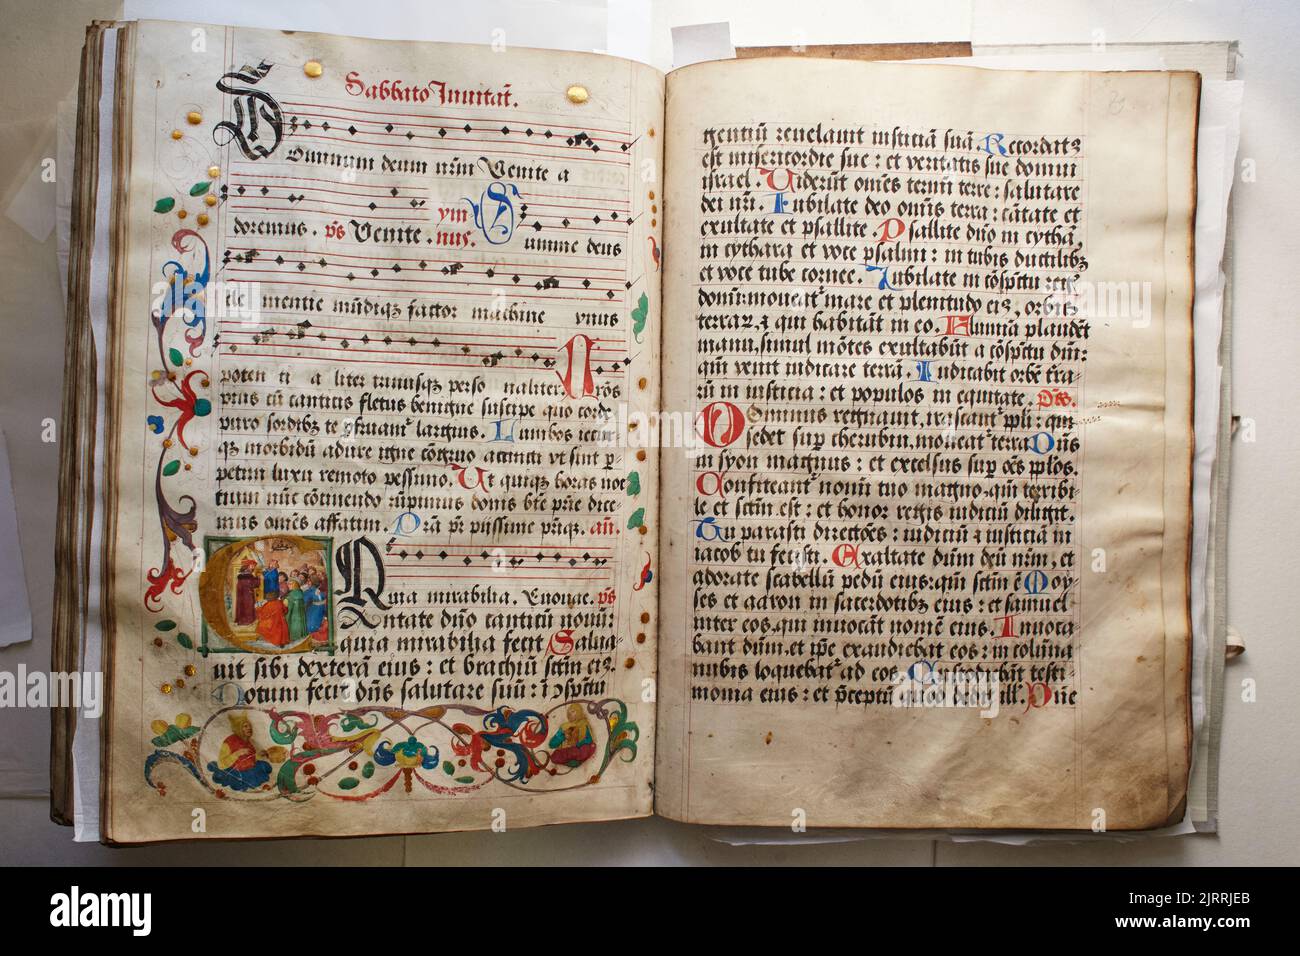 Sabbato Inuitat̄.
Dominum deum nr̄m Venite a
doremus. ps̄ Venite. ym
nus. Summe deus
cle mentie mūdiqꝫ factor machine vnus
poten ti a liter trinusqꝫ perso naliter. Nr̄os
pius cū canticis fletus benigne suscipe quo corde
puro sordibꝰ te ꝑfruamᷣ largius. Lumbos iecur
qꝫ morbidū adure igne cōgruo accincti vt sint ꝑ-
petim luxu remoto pessimo. Ut quiqꝫ horas noc
tium nūc cōcinendo rūpimus donis btē pr̄ie dite
mus omēs affatim. Pr̄a pr̄ piissime pr̄iqꝫ. an̄.
Quia mirabilia. Euouae. ps̄
Cantate dn̄o canticū nouū:
quia mirabilia fecit Salua-
uit sibi dexterā eius: et brachiū sctm̄ eiꝰ.
Notum fecit dn̄s salutare suū: ī ꝯspctu
gentiū reuelauit iusticiā suā. Recordatꝰ
est misericordie sue: et veritatis sue domui
israel. Viderūt omēs termī terre: salutare
dei nr̄i. Iubilate deo omīs terra: cātate et
exultate et psallite. Psallite dn̄o in cythā,
in cythara et voce psalmi: in tubis ductilibꝫ
et voce tube cornee. Iubilate in cōspc̄tu regꝭ
domī: moueatᷣ mare et plenitudo eiꝰ, orbis
terraꝝ, ⁊ qui habitāt in eo. Flumīa plaudēt
manu, simul mōtes exultabūt a cōspc̄tu dn̄i:
qm̄ venit iudicare terrā. Iudicabit orbē t̄ra-
rū in iusticia: et populos in equitate. ps̄.
Dominus regnauit, irascantᷣ ppl̄i: qui
sedet suꝑ cherubin, moueatᷣ terra. Dn̄s
in syon magnus: et excelsus suꝑ oēs ppl̄os.
Confiteantᷣ nomī tuo magno, qm̄ terribi-
le et sctm̄ est: et honor regis iudiciū diligit.
Tu parasti directōes: iudiciū ⁊ iusticiā in
iacob tu fecisti. Exaltate dūm deū nr̄m, et
adorate scabellū pedū eius: qm̄ sctm̄ ē. Moy-
ses et aaron in sacerdotibꝫ eius: et samuel
inter eos, qui inuocāt nomē eius. Inuoca
bant dūm, et ip̄e exaudiebat eos: in colūna
nubis loquebatᷣ ad eos. Custodiebāt testi-
monia eius: et p̄ceptū quod dedit ill'. Dn̄e
a alamy
alamy
Image ID: 2JRRJEB
www.alamy.com